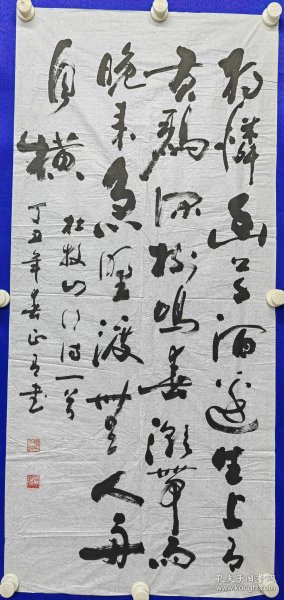 独憐幽草涧边生上有
黄鹂深树鸣春潮带雨
晚来急野渡無人舟
自横
杜牧山行诗一首
丁丑年春正
孔夫子旧书网